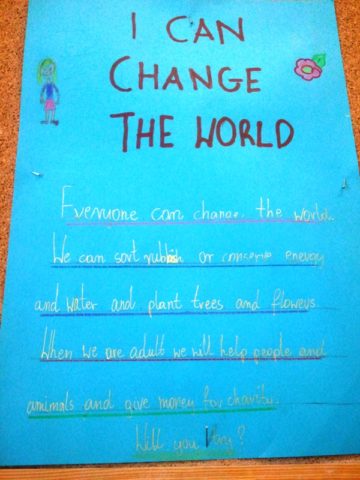 I CAN
CHANGE
THE WORLD
Everyone can change the world.
We can sort rubbish or conserve energy
and water and plant trees and flowers.
When we are adult we will help people and
animals and give money for charity.
Will you try?